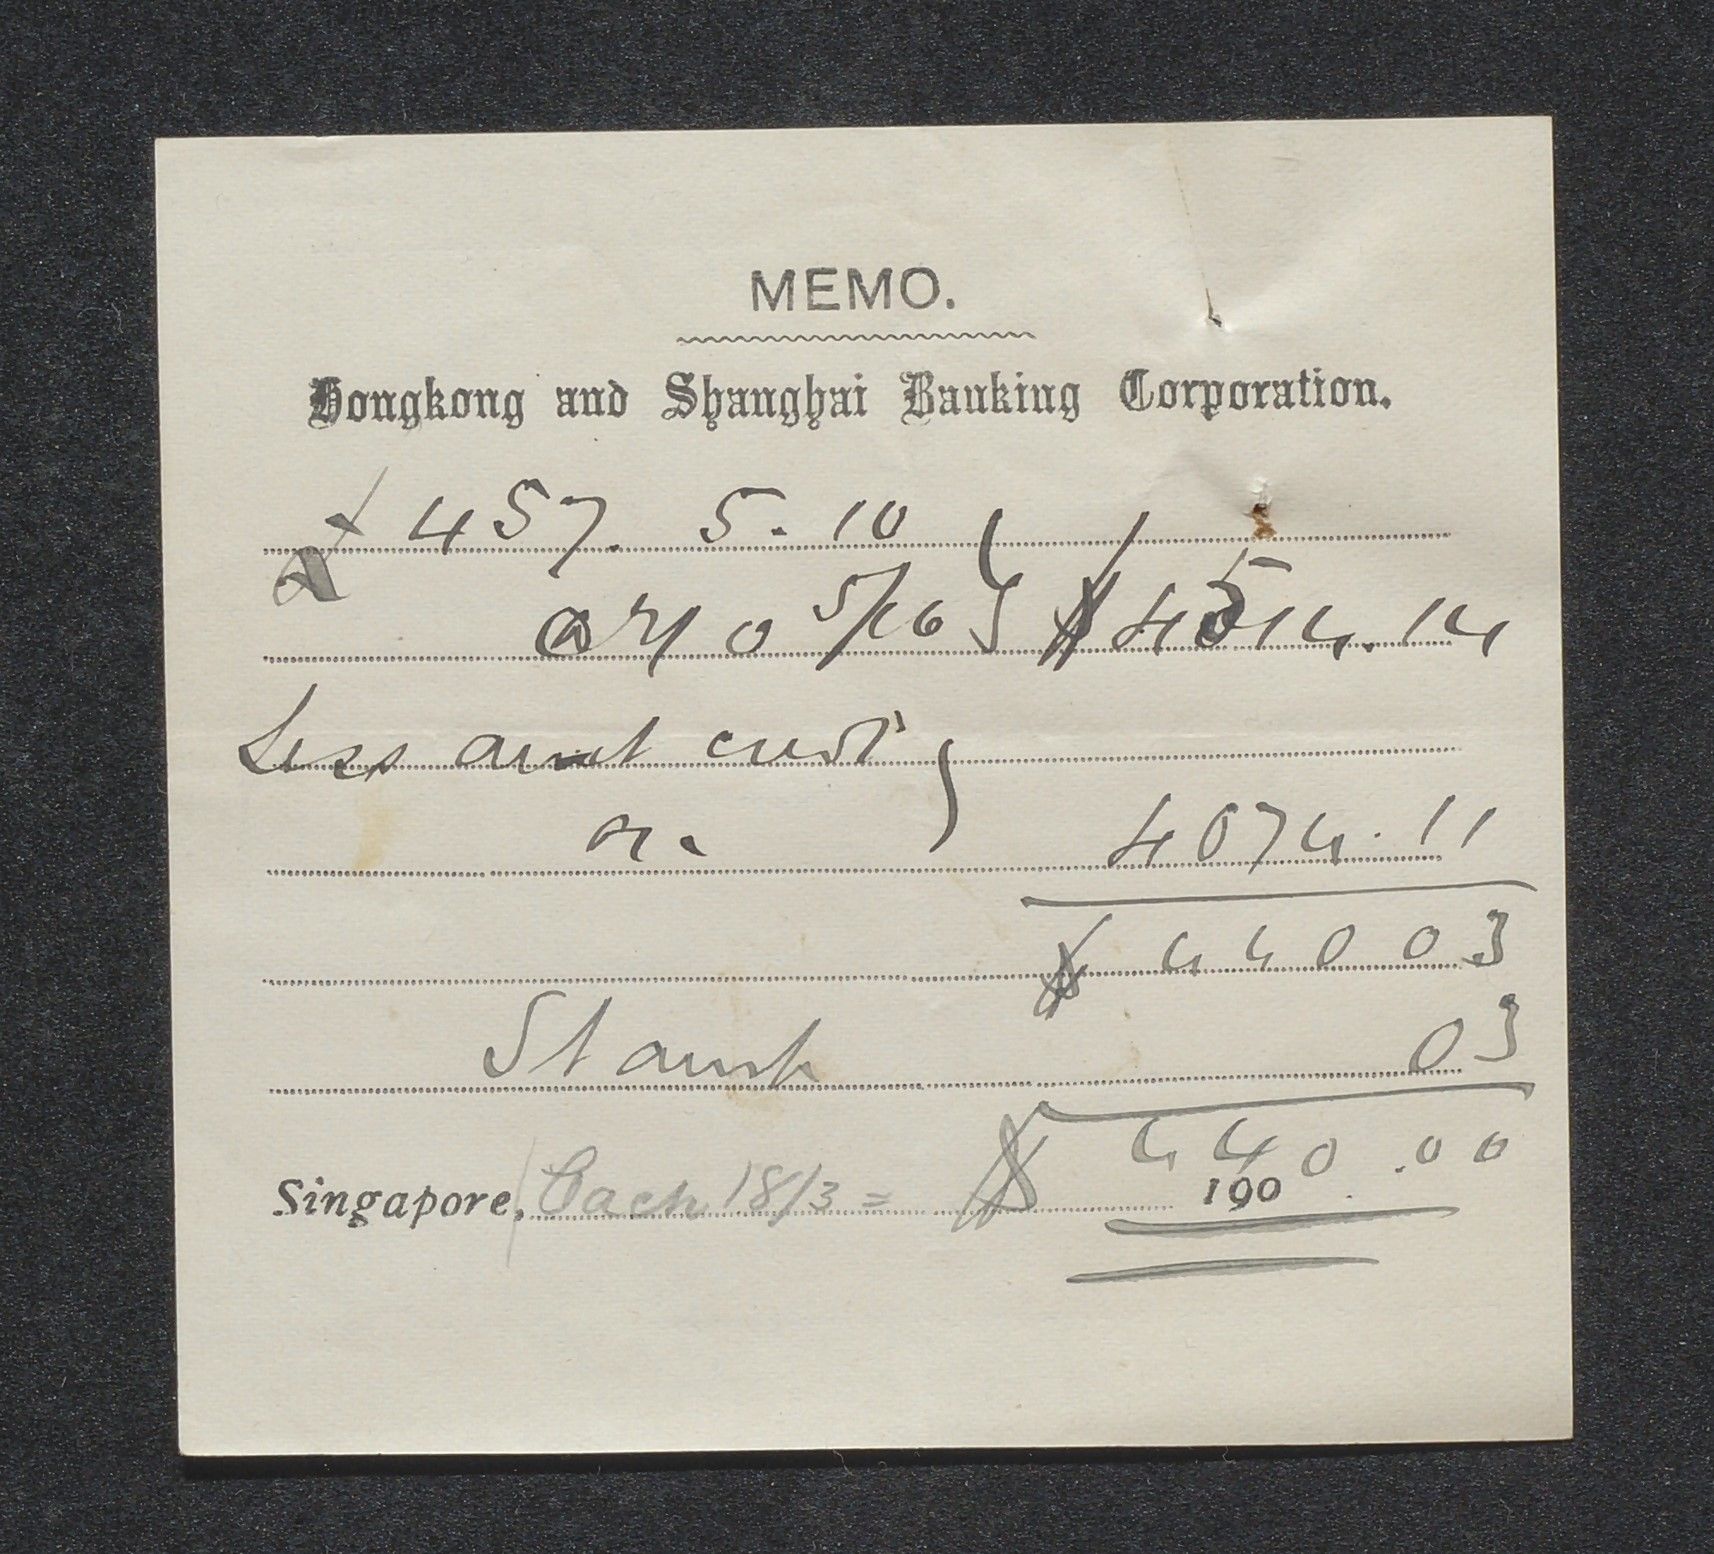 MEMO.
Hongkong and Shanghai Banking Corporation.
£ 457. 5. 10
@ 2/0 5/16 } $ 4514.14
Less amt cred
4074.11
$ 440 03
Stamp 03
$ 440.00
Singapore, Cash 18/3 = 190